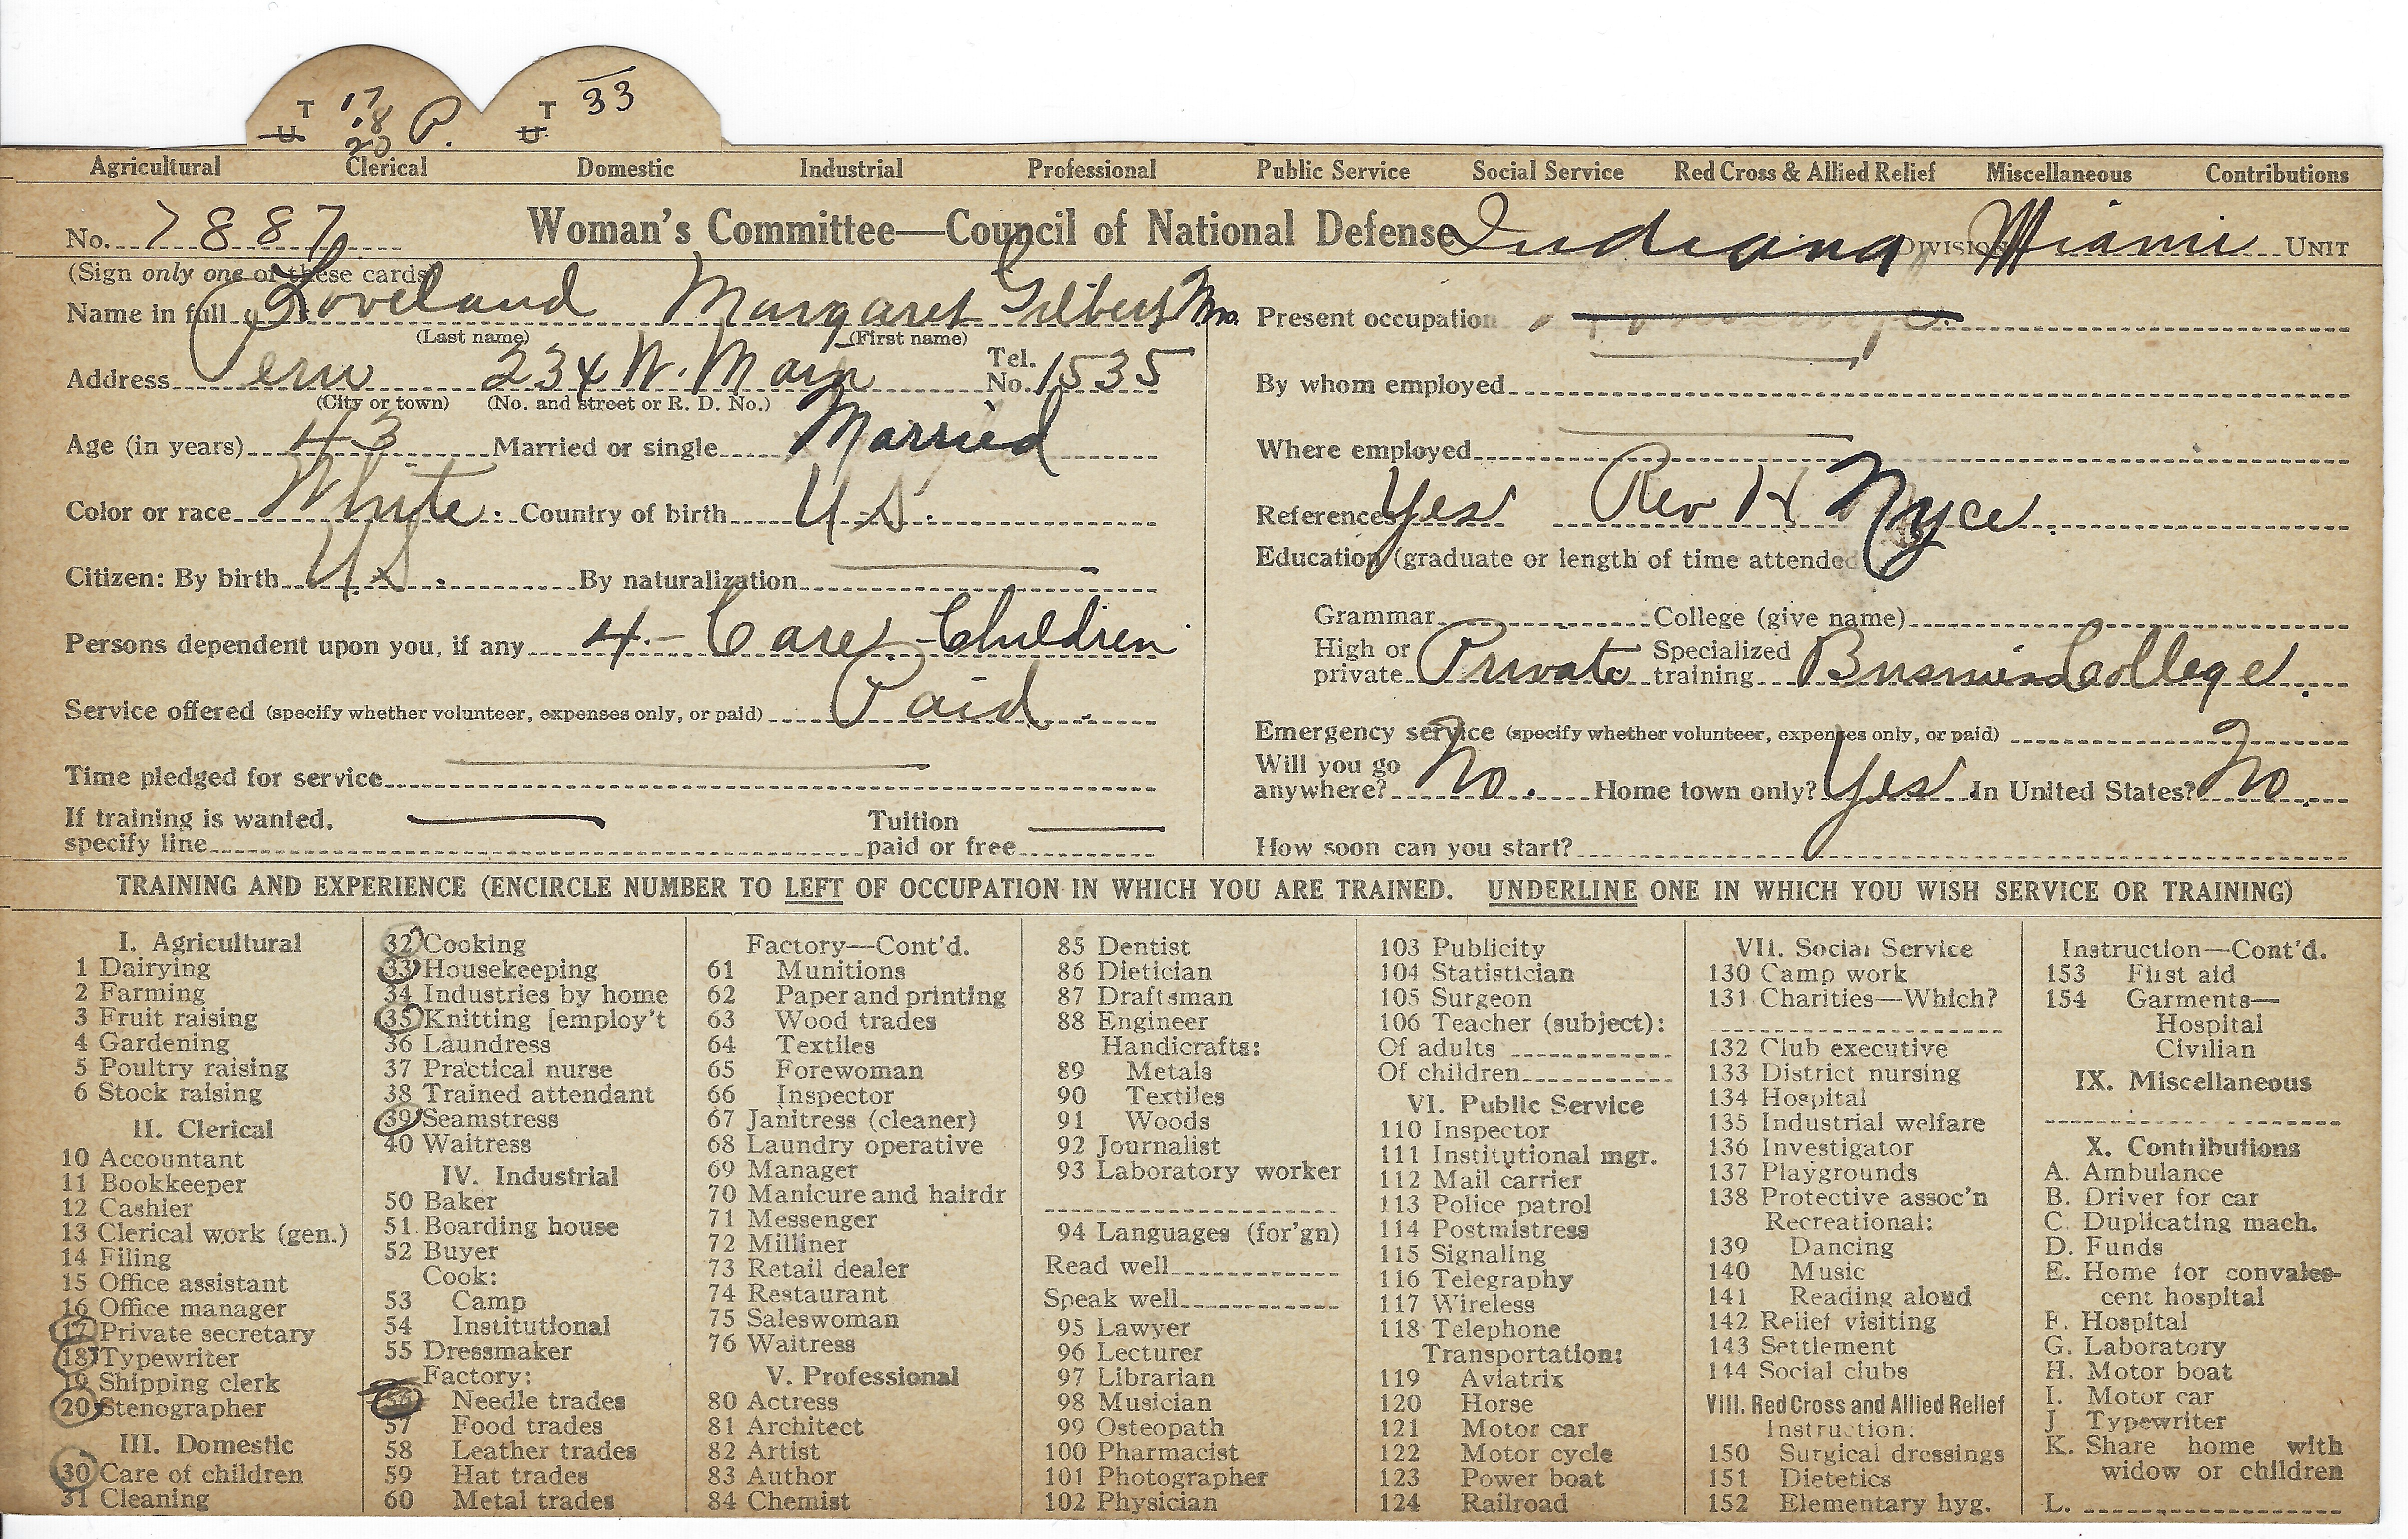 T 17 T 33
U 18 P. U
20
Agricultural Clerical Domestic Industrial Professional Public Service Social Service Red Cross & Allied Relief Miscellaneous Contributions
No. 7887 Woman's Committee—Council of National Defense Indiana DIVISION Miami UNIT
(Sign only one of these cards)
Name in full Loveland Margaret Gilbert Mrs.
(Last name) (First name)
Address Peru 234 W. Main Tel. No. 1535
(City or town) (No. and street or R. D. No.)
Age (in years) 43 Married or single Married
Color or race White. Country of birth U.S.
Citizen: By birth U.S. By naturalization
Persons dependent upon you, if any 4 - Care - Children
Service offered (specify whether volunteer, expenses only, or paid) Paid.
Time pledged for service
If training is wanted, specify line Tuition paid or free
Present occupation
By whom employed
Where employed
References Yes Rev H Nyce.
Education (graduate or length of time attended
Grammar College (give name)
High or private Private Specialized training Business College.
Emergency service (specify whether volunteer, expenses only, or paid)
Will you go anywhere? No. Home town only? Yes In United States? No.
How soon can you start?
TRAINING AND EXPERIENCE (ENCIRCLE NUMBER TO LEFT OF OCCUPATION IN WHICH YOU ARE TRAINED. UNDERLINE ONE IN WHICH YOU WISH SERVICE OR TRAINING)
I. Agricultural
1 Dairying
2 Farming
3 Fruit raising
4 Gardening
5 Poultry raising
6 Stock raising
II. Clerical
10 Accountant
11 Bookkeeper
12 Cashier
13 Clerical work (gen.)
14 Filing
15 Office assistant
16 Office manager
17 Private secretary
18 Typewriter
19 Shipping clerk
20 Stenographer
III. Domestic
30 Care of children
31 Cleaning
32 Cooking
33 Housekeeping
34 Industries by home
35 Knitting [employ't
36 Laundress
37 Practical nurse
38 Trained attendant
39 Seamstress
40 Waitress
IV. Industrial
50 Baker
51 Boarding house
52 Buyer
Cook:
53 Camp
54 Institutional
55 Dressmaker
Factory:
56 Needle trades
57 Food trades
58 Leather trades
59 Hat trades
60 Metal trades
Factory—Cont'd.
61 Munitions
62 Paper and printing
63 Wood trades
64 Textiles
65 Forewoman
66 Inspector
67 Janitress (cleaner)
68 Laundry operative
69 Manager
70 Manicure and hairdr
71 Messenger
72 Milliner
73 Retail dealer
74 Restaurant
75 Saleswoman
76 Waitress
V. Professional
80 Actress
81 Architect
82 Artist
83 Author
84 Chemist
85 Dentist
86 Dietician
87 Draftsman
88 Engineer
Handicrafts:
89 Metals
90 Textiles
91 Woods
92 Journalist
93 Laboratory worker
94 Languages (for'gn)
Read well
Speak well
95 Lawyer
96 Lecturer
97 Librarian
98 Musician
99 Osteopath
100 Pharmacist
101 Photographer
102 Physician
103 Publicity
104 Statistician
105 Surgeon
106 Teacher (subject):
Of adults
Of children
VI. Public Service
110 Inspector
111 Institutional mgr.
112 Mail carrier
113 Police patrol
114 Postmistress
115 Signaling
116 Telegraphy
117 Wireless
118 Telephone
Transportation:
119 Aviatrix
120 Horse
121 Motor car
122 Motor cycle
123 Power boat
124 Railroad
VII. Social Service
130 Camp work
131 Charities—Which?
132 Club executive
133 District nursing
134 Hospital
135 Industrial welfare
136 Investigator
137 Playgrounds
138 Protective assoc'n
Recreational:
139 Dancing
140 Music
141 Reading aloud
142 Relief visiting
143 Settlement
144 Social clubs
VIII. Red Cross and Allied Relief
Instruction:
150 Surgical dressings
151 Dietetics
152 Elementary hyg.
Instruction—Cont'd.
153 First aid
154 Garments—
Hospital
Civilian
IX. Miscellaneous
X. Contributions
A. Ambulance
B. Driver for car
C. Duplicating mach.
D. Funds
E. Home for convales-
cent hospital
F. Hospital
G. Laboratory
H. Motor boat
I. Motor car
J. Typewriter
K. Share home with
widow or children
L.